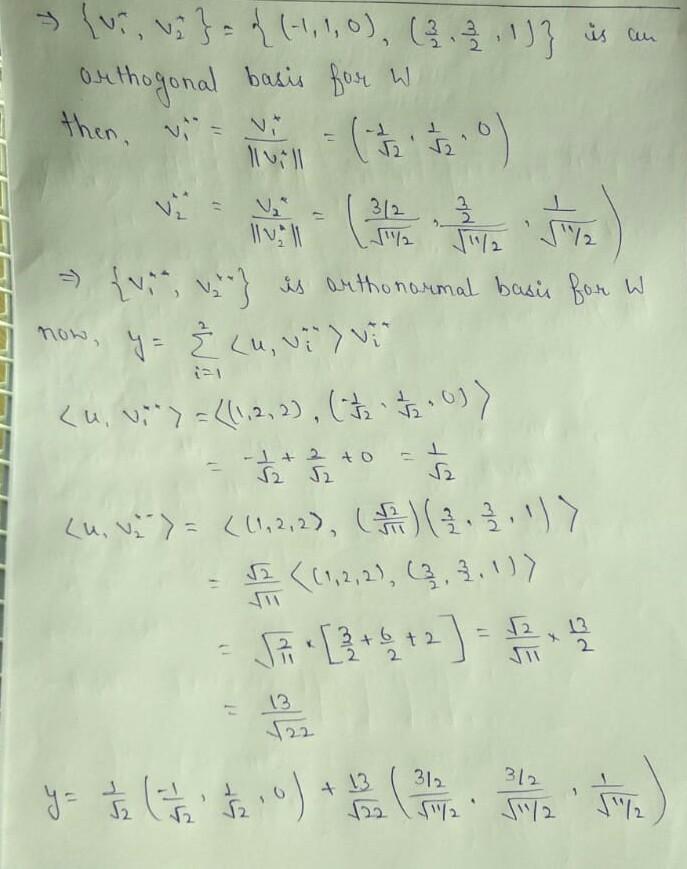 ⇒ {v₁*, v₂*} = {(-1,1,0), (3/2, 3/2, 1)} is an
orthogonal basis for W
then, v₁** = v₁*/||v₁*|| = (-1/√2, 1/√2, 0)
v₂** = v₂*/||v₂*|| = ((3/2)/√(11/2), (3/2)/√(11/2), 1/√(11/2))
⇒ {v₁**, v₂**} is orthonormal basis for W
now, y = Σ_{i=1}^{2} <u, vᵢ**> vᵢ**
<u, v₁**> = <(1,2,2), (-1/√2, 1/√2, 0)>
= -1/√2 + 2/√2 + 0 = 1/√2
<u, v₂**> = <(1,2,2), (√2/√11)(3/2, 3/2, 1)>
= √2/√11 <(1,2,2), (3/2, 3/2, 1)>
= √(2/11) × [3/2 + 6/2 + 2] = √2/√11 × 13/2
= 13/√22
y = 1/√2 (-1/√2, 1/√2, 0) + 13/√22 ((3/2)/√(11/2), (3/2)/√(11/2), 1/√(11/2))